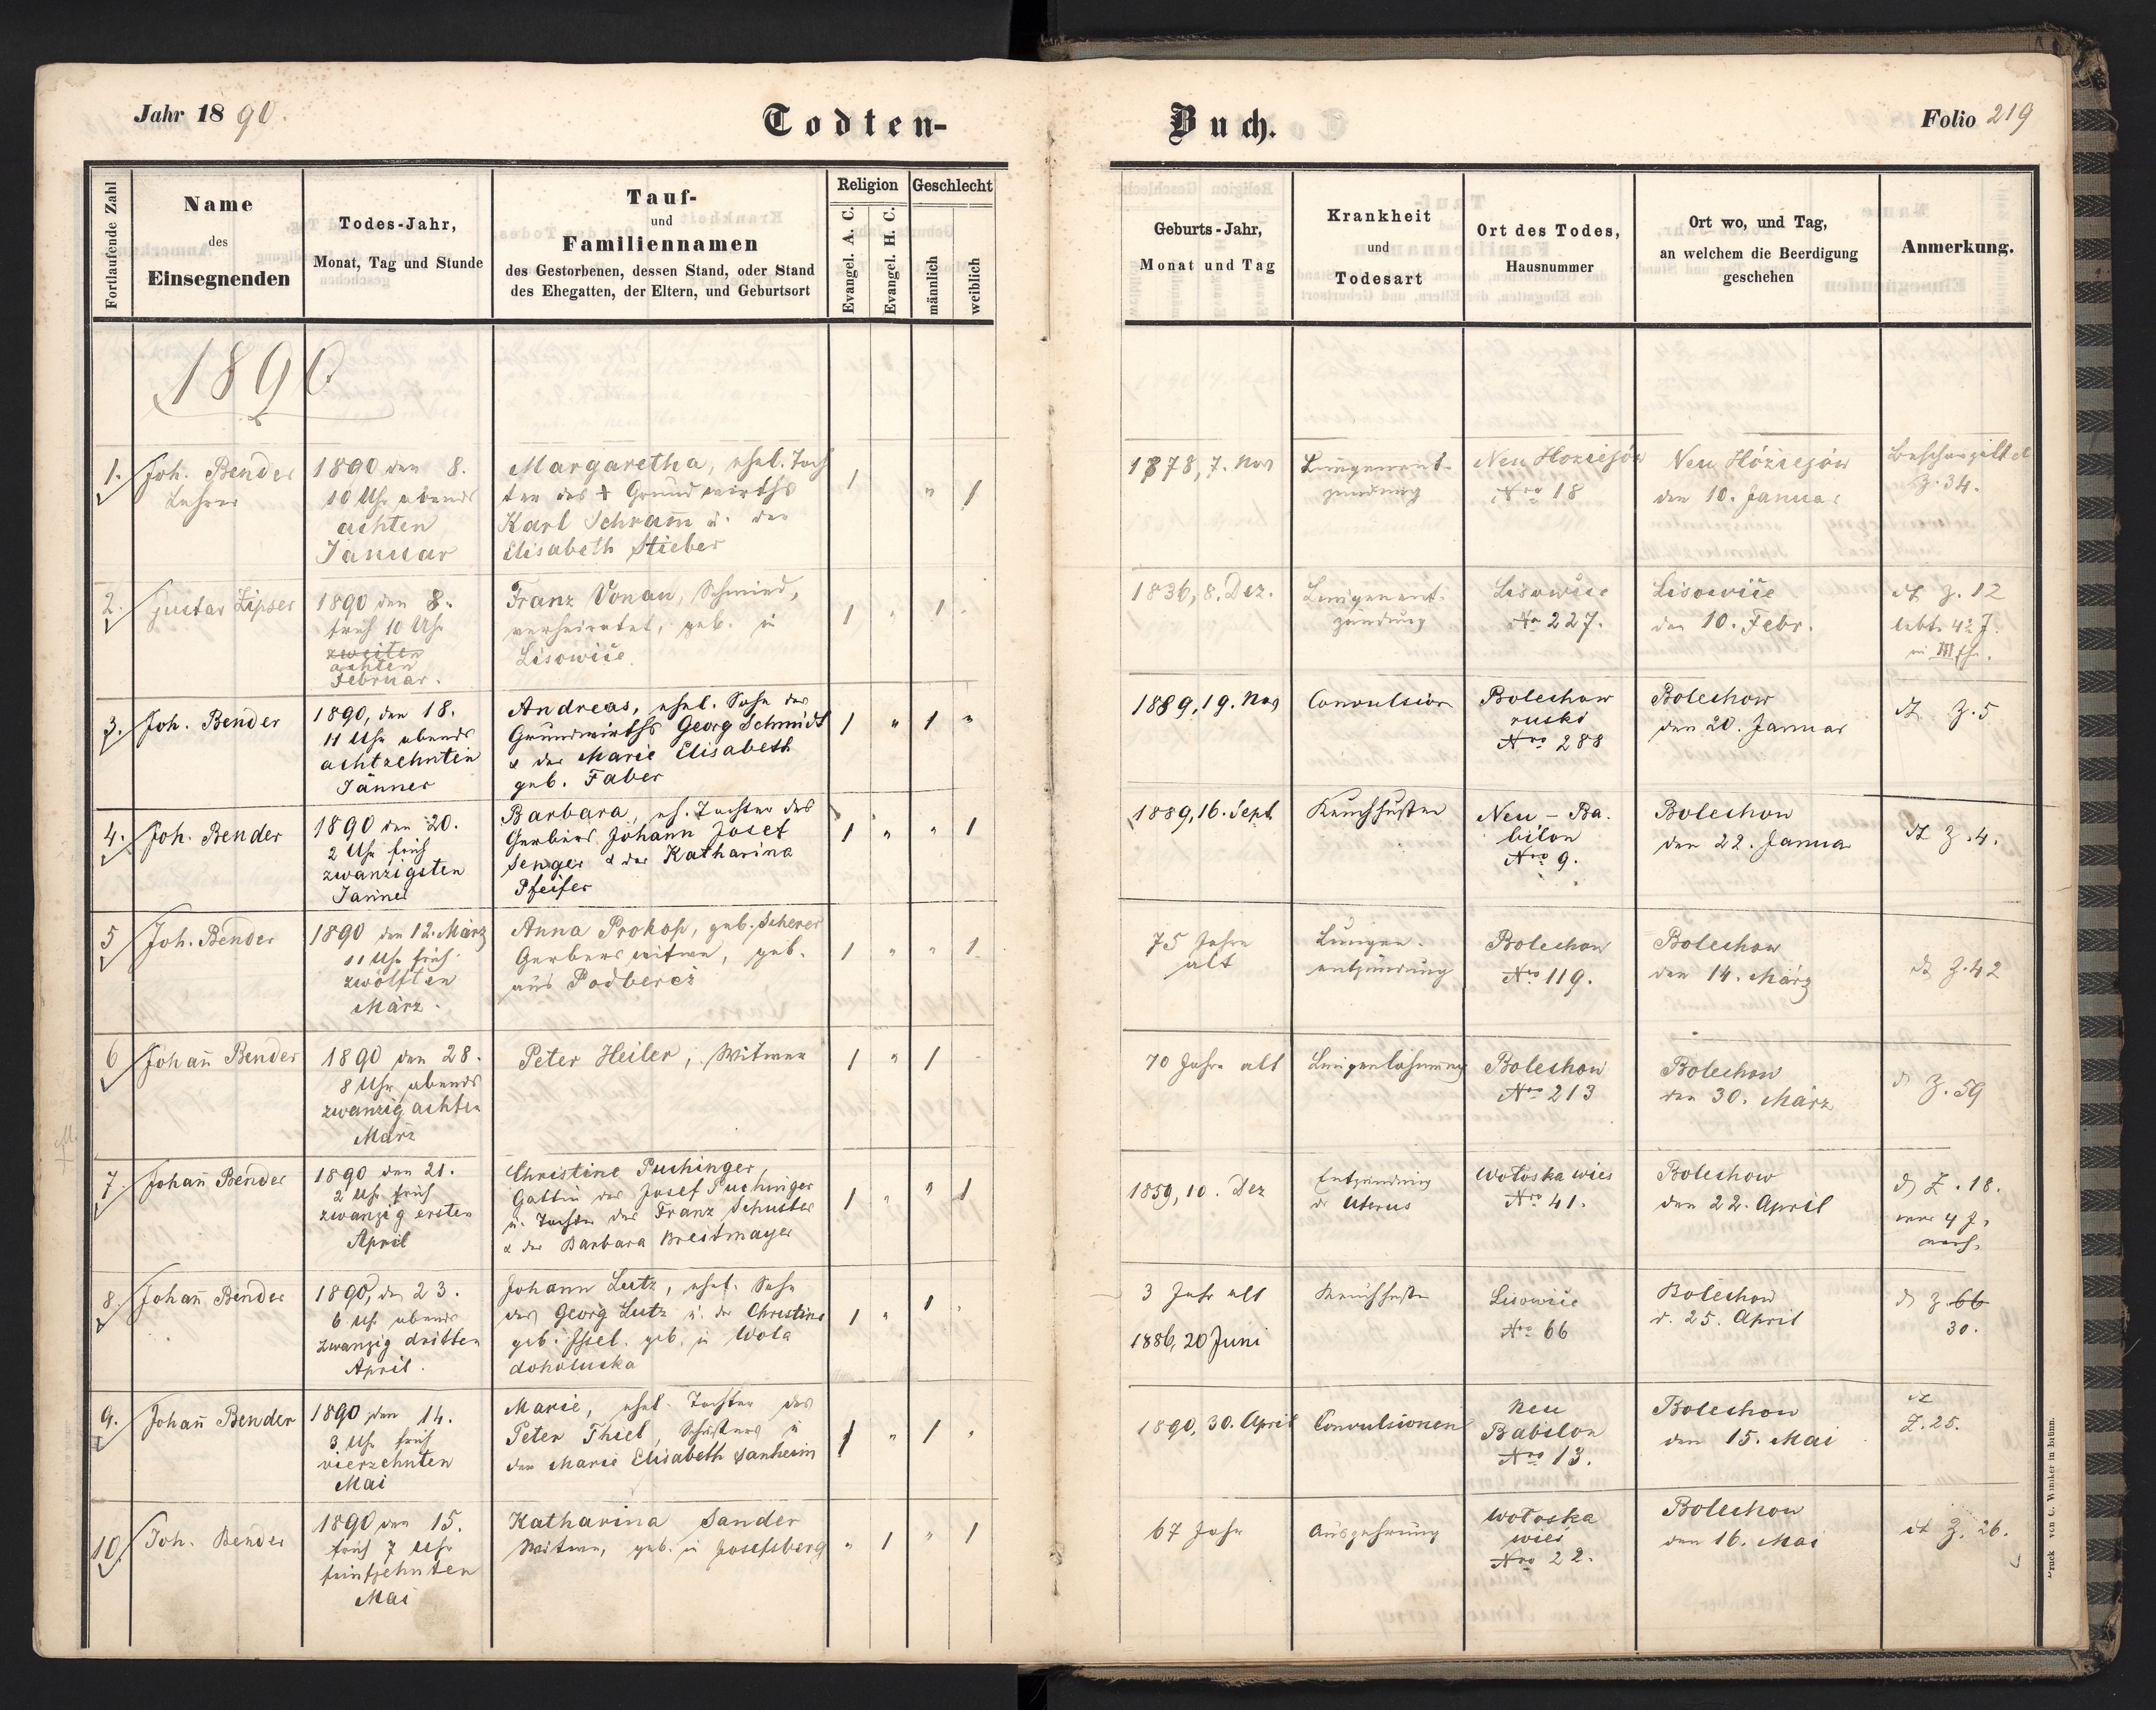 Jahr 1890.
Todten-
Buch.
Folio 219
Fortlaufende Zahl
Name
des
Einsegnenden
Todes-Jahr,
Monat, Tag und Stunde
Tauf-
und
Familiennamen
des Gestorbenen, dessen Stand, oder Stand
des Ehegatten, der Eltern, und Geburtsort
Religion
Evangel. A. C.
Evangel. H. C.
Geschlecht
männlich
weiblich
Geburts-Jahr,
Monat und Tag
Krankheit
und
Todesart
Ort des Todes,
Hausnummer
Ort wo, und Tag,
an welchem die Beerdigung
geschehen
Anmerkung.
1890
1.
Joh. Bender
Lehrer
1890 den 8.
10 Uhr abends
achten
Januar
Margaretha, ehel. Toch
ter des + Grundwirths
Karl Schram̄ u. der
Elisabeth Stieber
1
"
1
1878, 7. Nov
Lungenent-
zündung
Neu Hoziejów
Nro 18
Neu Hoziejów
den 10. Januar
Z. 34.
2.
Gustav Zipser
1890 den 8.
früh 10 Uhr
zweiten
achten
Februar.
Franz Vonau, Schmied,
verheiratet, geb. in
Lisowice
1
"
1
1836, 8. Dez.
Lungenent-
zündung
Lisowice
No 227.
Lisowice
den 10. Febr.
dt Z. 12
lebte 42 J.
in III Ehe.
3.
Joh. Bender
1890, den 18.
11 Uhr abends
achtzehnten
Jänner
Andreas, ehel. Sohn des
Grundwirths Georg Schmidt
& der Marie Elisabeth
geb. Faber
1
"
1
"
1889, 19. Nov
Convulsion
Bolechow
ruski
Nro 288
Bolechow
den 20. Januar
dt Z. 5
4.
Joh. Bender
1890 den 20.
2 Uhr früh
zwanzigsten
Jänner
Barbara, eh. Tochter des
Gerbers Johann Josef
Senger & der Katharina
Pfeifer
1
"
"
1
1889, 16. Sept
Keuchhusten
Neu-Ba-
bilon
Nro 9.
Bolechow
den 22. Janua
dt Z. 4.
5
Joh. Bender
1890 den 12. März
11 Uhr früh
zwölften
März.
Anna Prokop, geb. Scherer
Gerberswitwe, geb.
aus Podbereż
1
"
"
1
75 Jahre
alt
Lungen-
entzündung
Bolechow
Nro 119.
Bolechow
den 14. März
dt Z. 42
6
Johan̄ Bender
1890 den 28.
8 Uhr abends
zwanzig achten
März
Peter Heiler, Witwer
1
"
1
70 Jahre alt
Lungenlähmung
Bolechow
Nro 213
Bolechow
den 30. März
dt Z. 59
7.
Johan̄ Bender
1890 den 21.
2 Uhr früh
zwanzig ersten
April
Christine Puchinger,
Gattin des Josef Puchinger
u. Tochter des Franz Schuster
& der Barbara Breitmayer
1
"
"
1
1859, 10. Dez
Entzündung
d. Uterus
Wołoska wieś
Nro 41.
Bolechow
den 22. April
dt Z. 18.
war 4 J.
8.
Johan̄ Bender
1890, den 23.
6 Uhr abends
zwanzig dritten
April.
Johann Lutz, ehel. Sohn
des Georg Lutz u. der Christine
geb. in Wola
doholuska
1
"
1
3 Jahr alt
1886, 20 Juni
Keuchhusten
Lisowice
Nro 66
Bolechow
d. 25. April
dt Z. 66
30.
9.
Johan̄ Bender
1890, den 14.
3 Uhr früh
vierzehnten
Mai
Marie, ehel. Tochter des
Peter Thiel, Schusters u
der Marie Elisabeth Sanheim
1
"
1
"
1890, 30. April
Convulsionen
Neu
Babilon
Nro 13.
Bolechow
den 15. Mai
dt
Z. 25.
10.
Joh. Bender
1890 den 15.
früh 7 Uhr
funfzehnten
Mai
Katharina Sander
Witwe, geb. in Josefsberg
"
1
"
1
67 Jahre
Auszehrung
Wołoska
wieś
Nro 22.
Bolechow
den 16. Mai
dt Z. 26.
Druck von C. Winiker in Brünn.